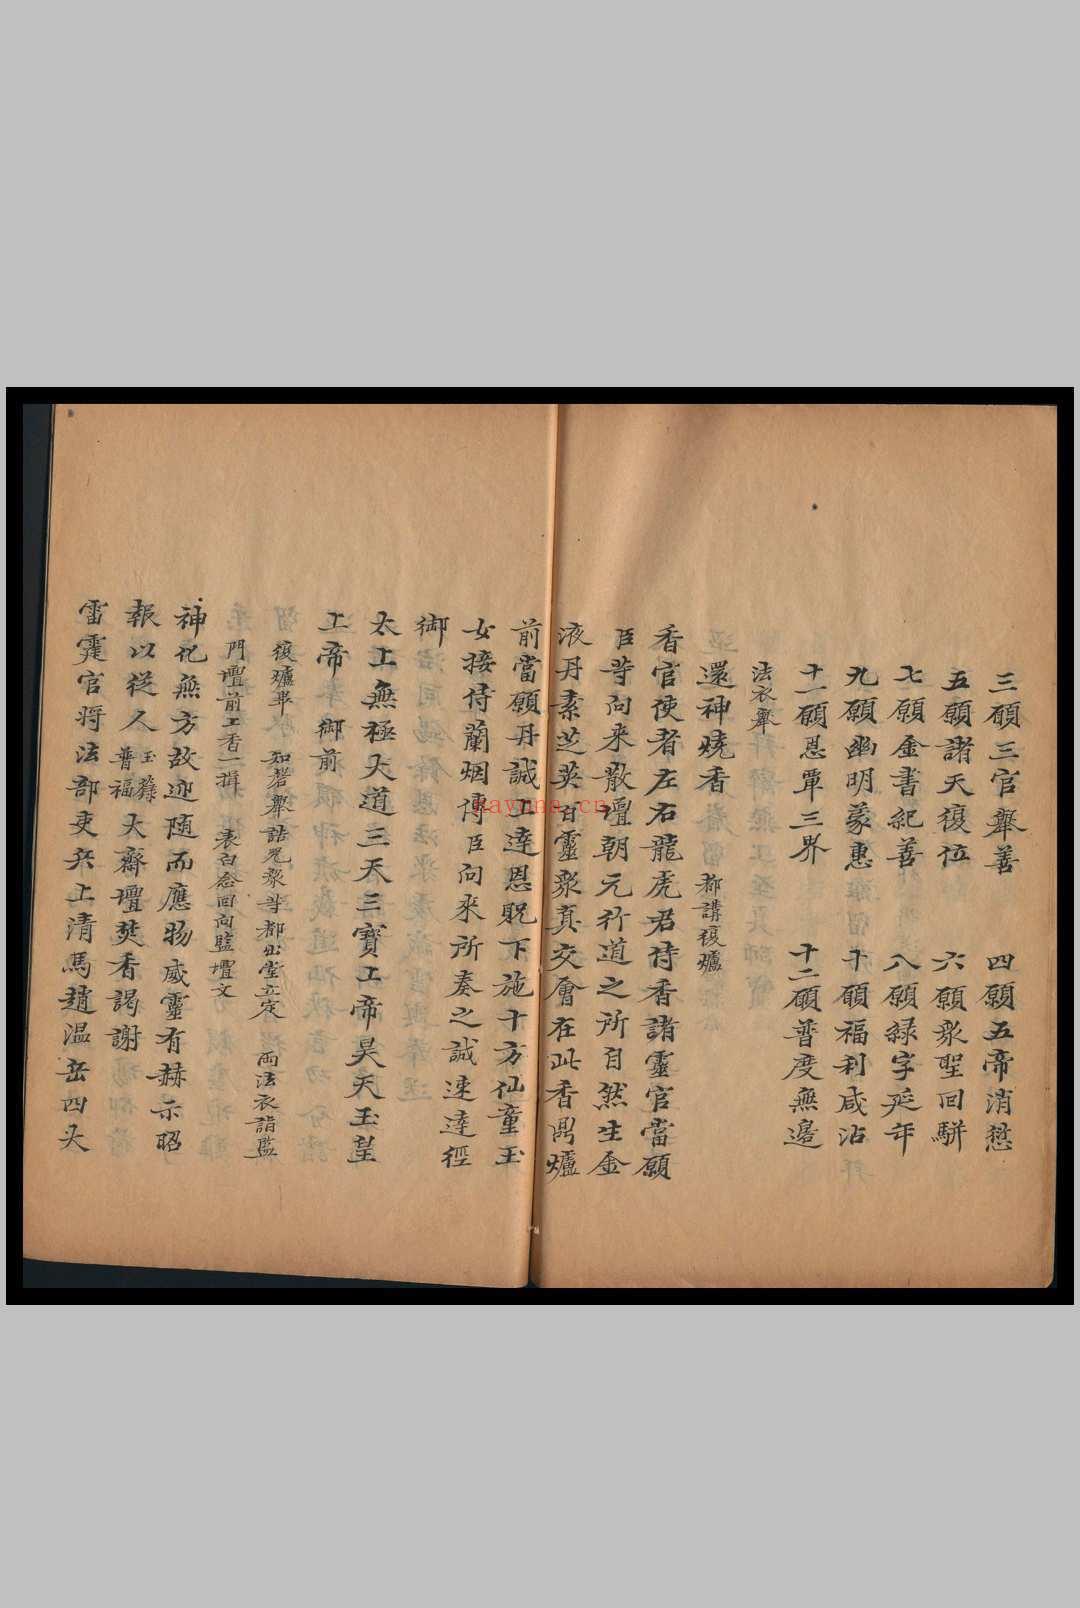 三願三官舉善 四願五帝消愆
五願諸天復位 六願眾聖回駢
七願金書紀善 八願綠字延年
九願幽明蒙惠 十願福利咸沾
十一願恩覃三界 十二願普度無邊
法衣舉
還神燒香 都講復爐
香官使者左右龍虎君侍香諸靈官當願
臣等向来散壇朝元行道之所自然生金
液丹素芝英百靈眾真交會在此香鼎爐
前當願丹誠上達恩貺下施十方仙童玉
女接侍蘭烟傳臣向來所奏之誠速達徑
御
太上無極大道三天三寶上帝昊天玉皇
上帝 御前
復爐畢 知磬舉誥咒眾等都出堂立定 两法衣詣監
門壇前上香一揖 表白念回向監壇文
神化無方故迎随而應物威靈有赫示昭
報以從人玉籙普福大齋壇焚香謁謝
雷霆官将法部吏兵上清馬趙温岳四大
nayona.cn